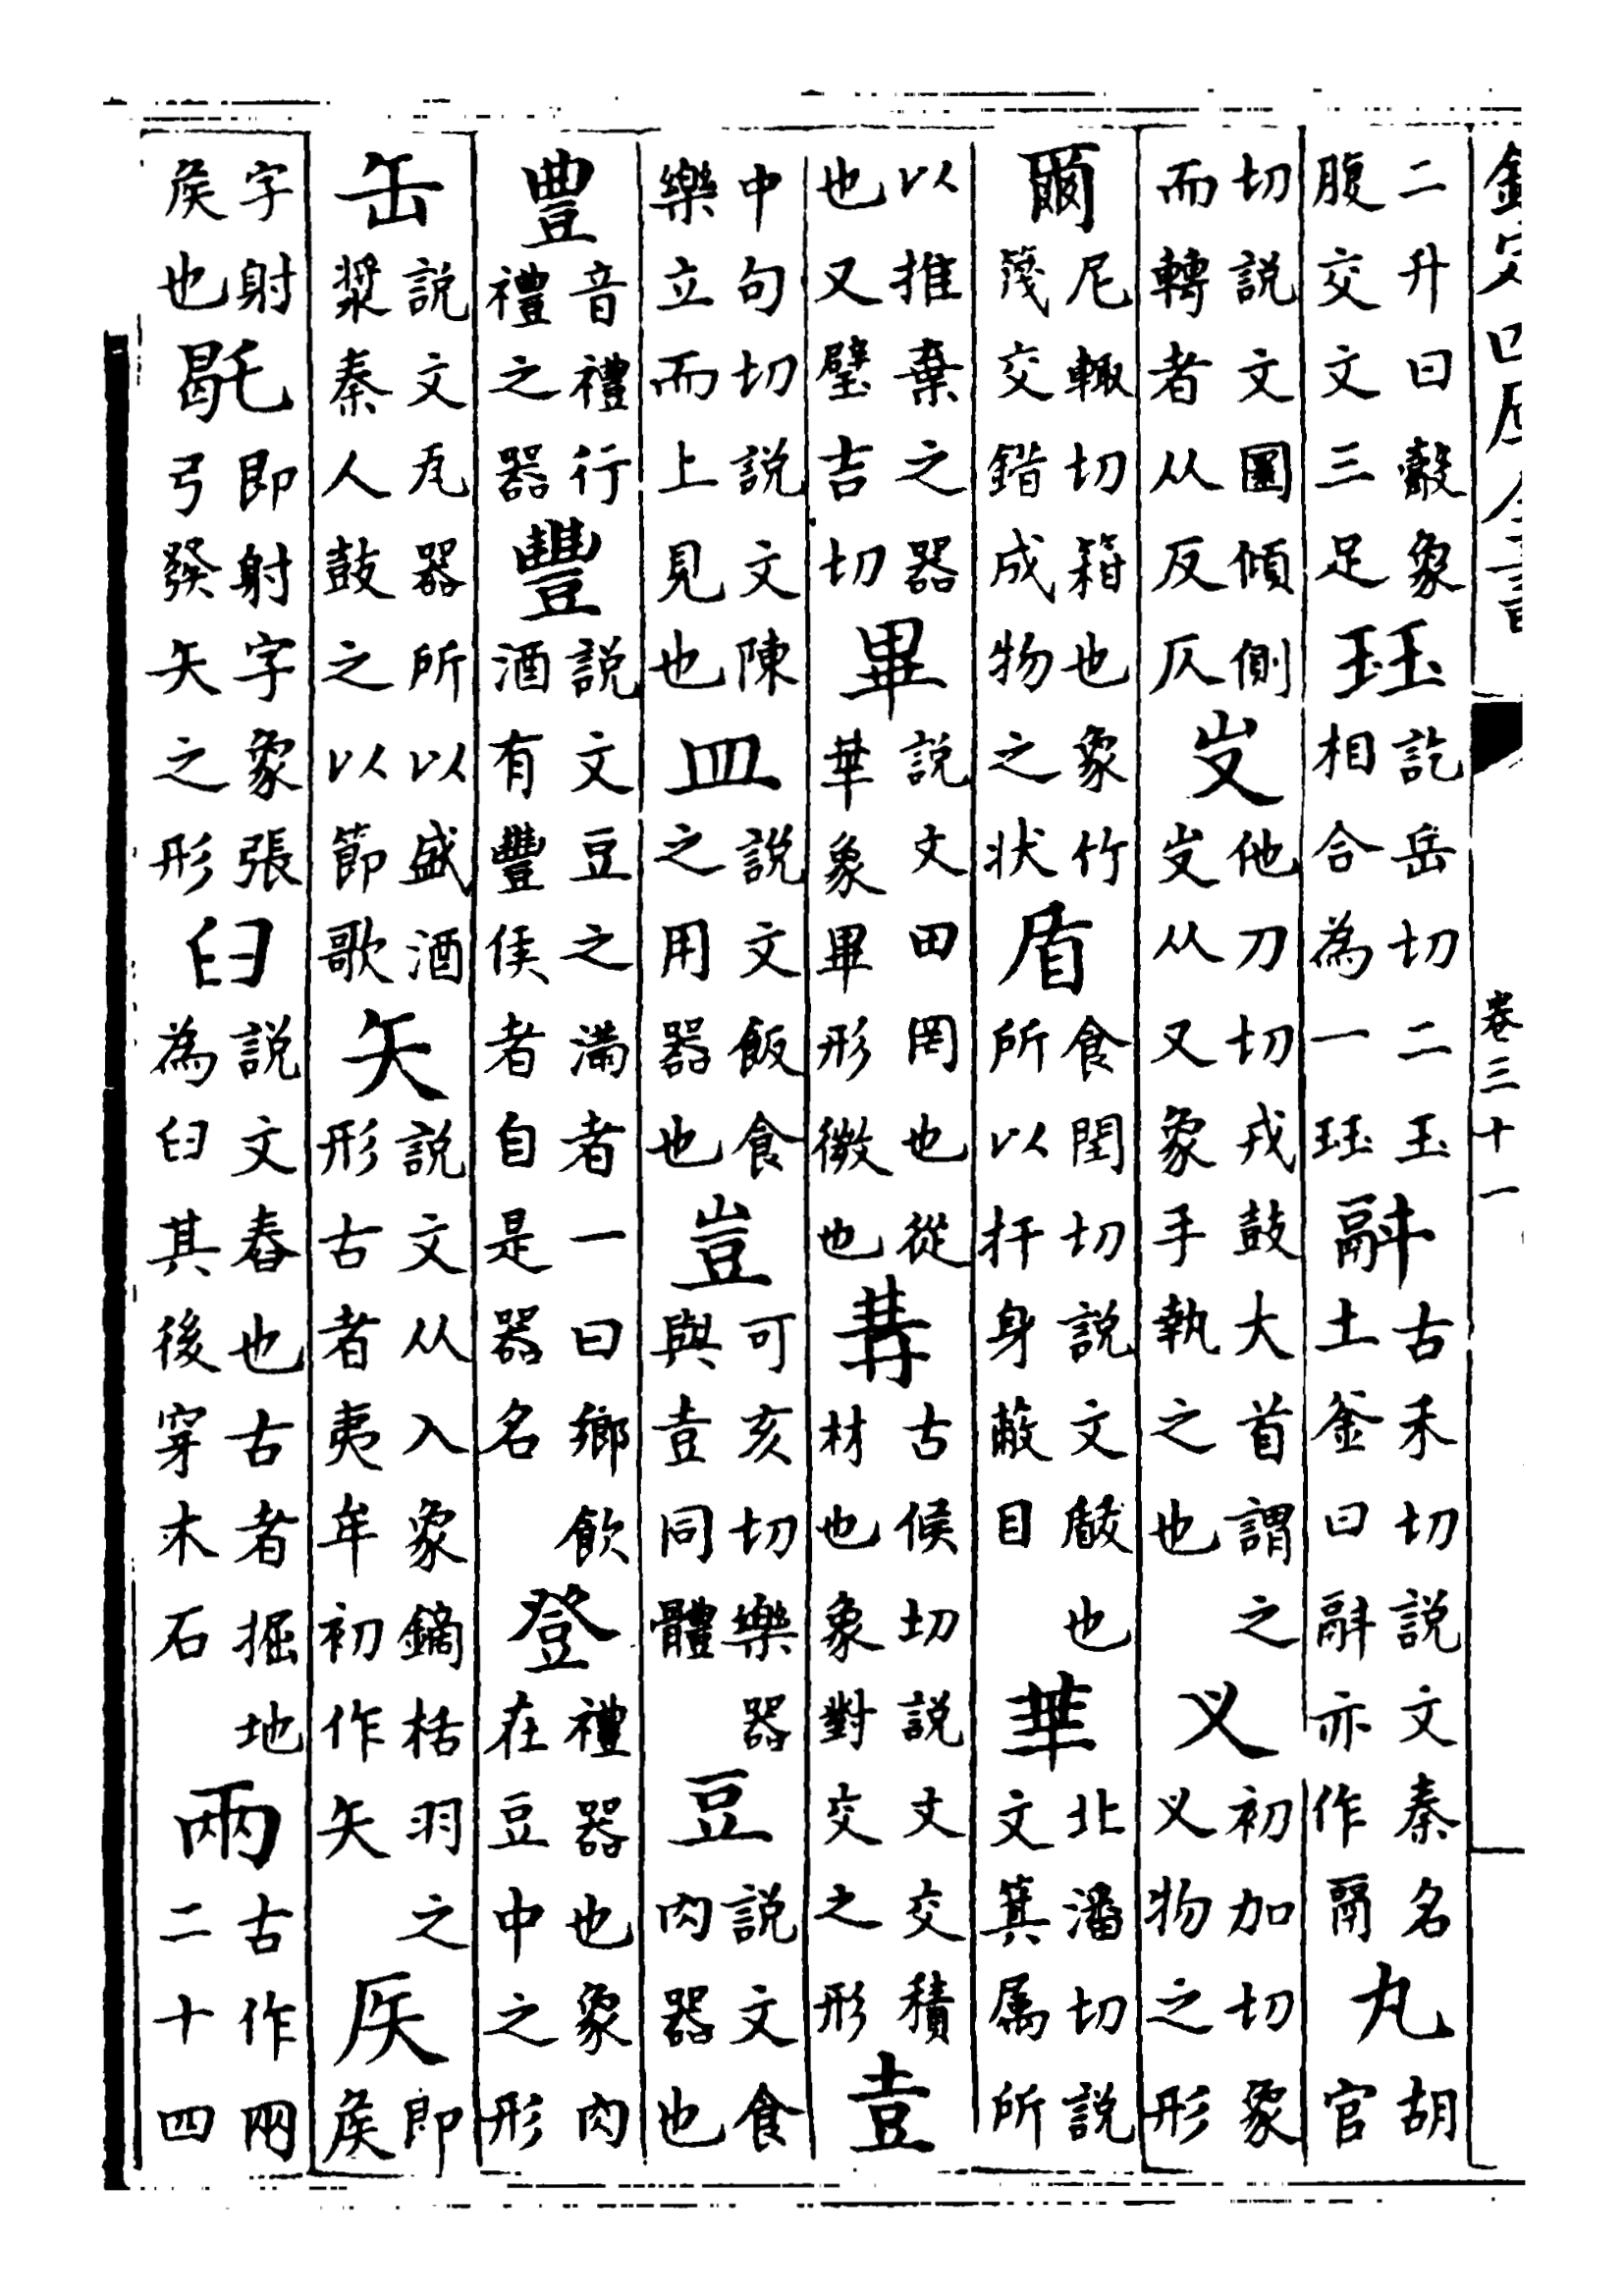 欽定四庫全書 卷三十一
二升曰㲄象腹交文三足珏訖岳切二玉相合為一珏䰛古禾切説文秦名土釜曰䰛亦作鬲丸胡官
切説文圜傾側而轉者从反仄𠬢他刀切戎鼓大首謂之𠬢从又象手執之也义初加切象义物之形
爾尼輙切箱也象竹篾交錯成物之状盾食閏切説文瞂也所以扞身蔽目𠦒北潘切説文箕属所
以推棄之器也又璧吉切畢説文田罔也從𠦒象畢形微也冓古候切説文交積材也象對交之形壴
中句切説文陳樂立而上見也皿説文飯食之用器也豈可亥切樂器與壴同體豆説文食肉器也
豊音禮行禮之器豐説文豆之滿者一曰鄉飲酒有豐侯者自是器名登禮器也象肉在豆中之形
缶説文瓦器所以盛酒漿秦人鼓之以節歌矢説文从入象鏑栝羽之形古者夷牟初作矢𥎦即矦
字射矦也即射字象張弓發矢之形臼説文舂也古者掘地為臼其後穿木石兩古作㒳二十四